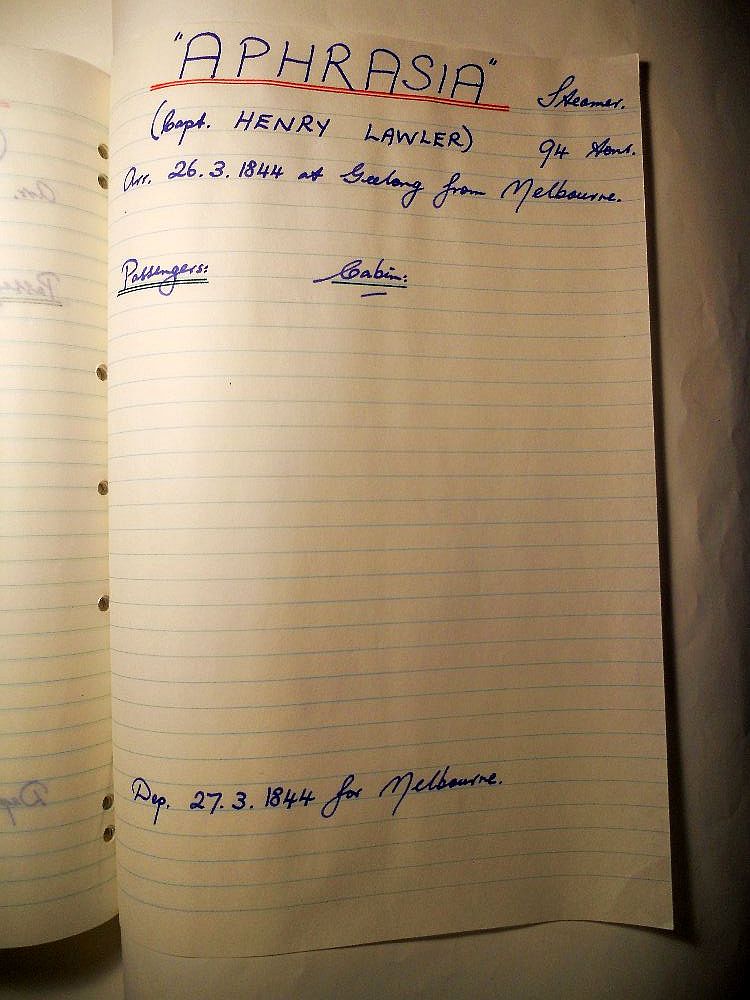 "APHRASIA" Steamer.
(Capt. HENRY LAWLER) 94 tons.
Arr. 26.3.1844 at Geelong from Melbourne.
Passengers: Cabin:
Dep. 27.3.1844 for Melbourne.